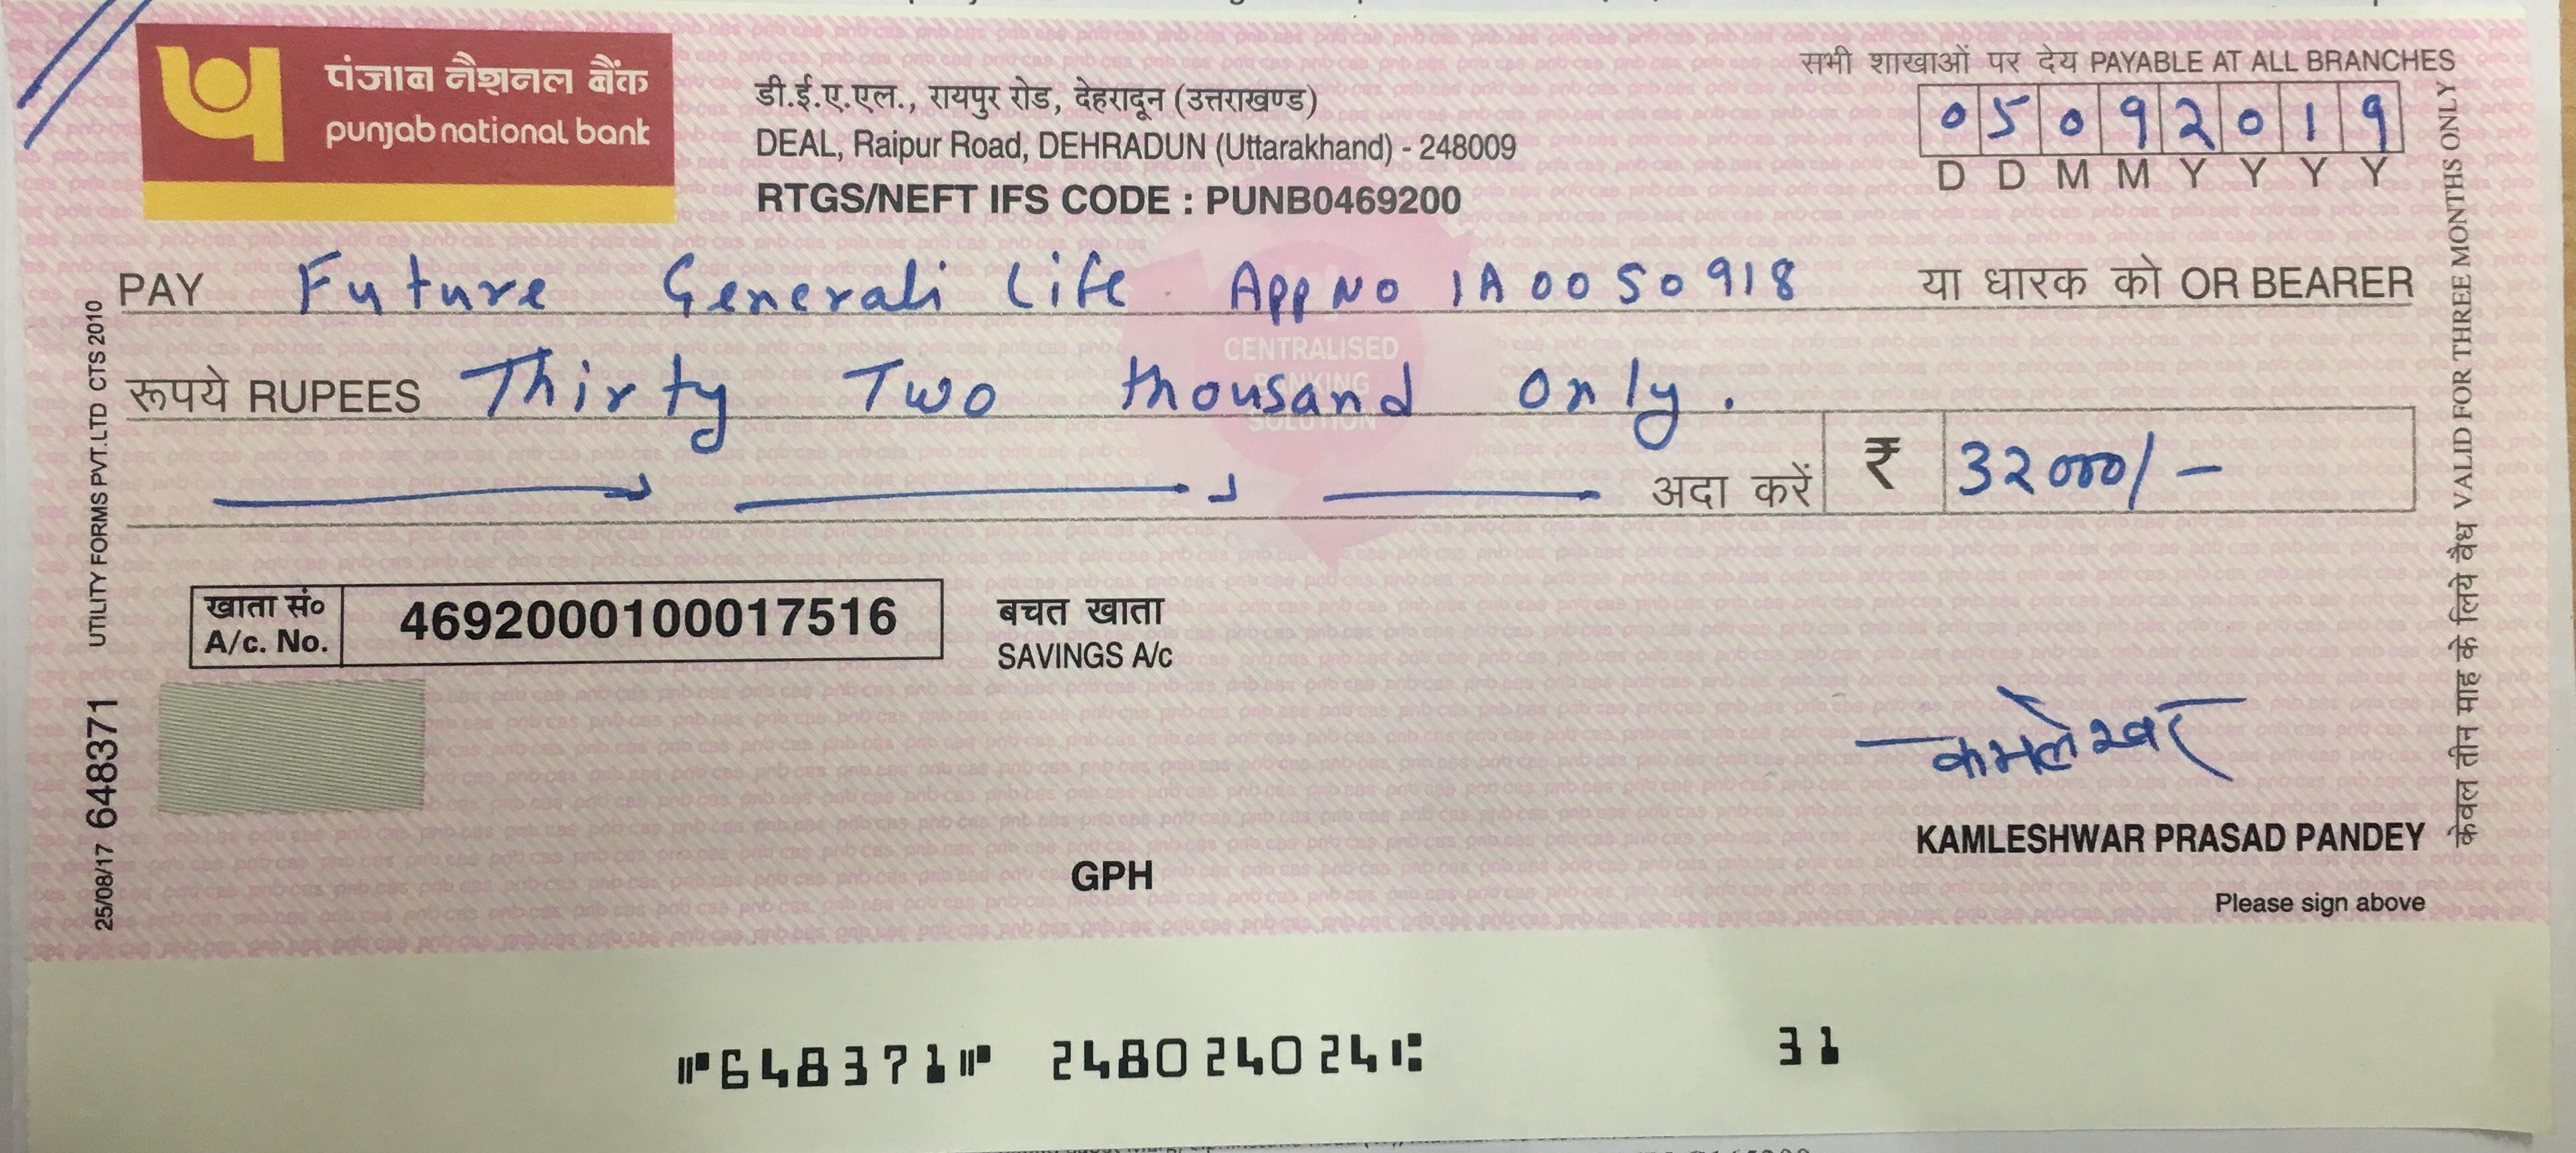 पंजाब नैशनल बैंक
punjab national bank
डी.ई.ए.एल., रायपुर रोड, देहरादून (उत्तराखण्ड)
DEAL, Raipur Road, DEHRADUN (Uttarakhand) - 248009
RTGS/NEFT IFS CODE : PUNB0469200
सभी शाखाओं पर देय PAYABLE AT ALL BRANCHES
05092019
D D M M Y Y Y Y
PAY Future Generali Life App No 1A0050918 या धारक को OR BEARER
रूपये RUPEES Thirty Two thousand only.
CENTRALISED
BANKING
SOLUTION
अदा करें ₹ 32000/-
खाता सं०
A/c. No.
4692000100017516
बचत खाता
SAVINGS A/c
कमलेश्वर
KAMLESHWAR PRASAD PANDEY
Please sign above
GPH
25/08/17 648371 UTILITY FORMS PVT.LTD CTS 2010
केवल तीन माह के लिये वैध VALID FOR THREE MONTHS ONLY
⑈648371⑈ 248024024⑆ 31